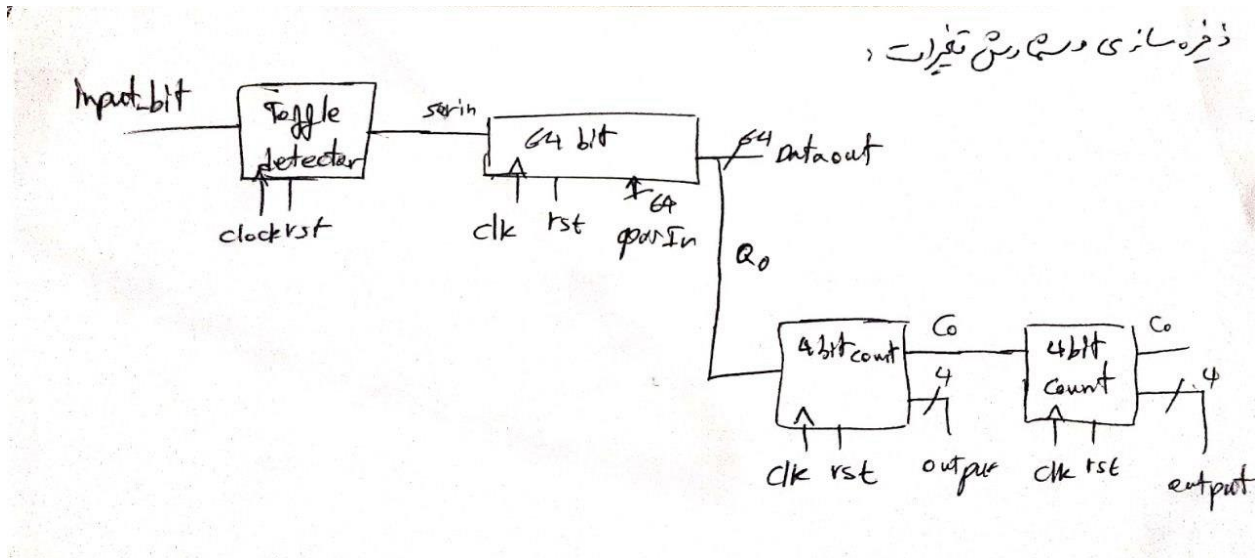 ذخیره سازی و شمارش تغییرات :
Input_bit
Toggle
detector
clock rst
serin
64 bit
clk rst
64
parIn
64 Dataout
Q0
4 bit count
Co
4
clk rst
output
4 bit
count
Co
4
clk rst
output